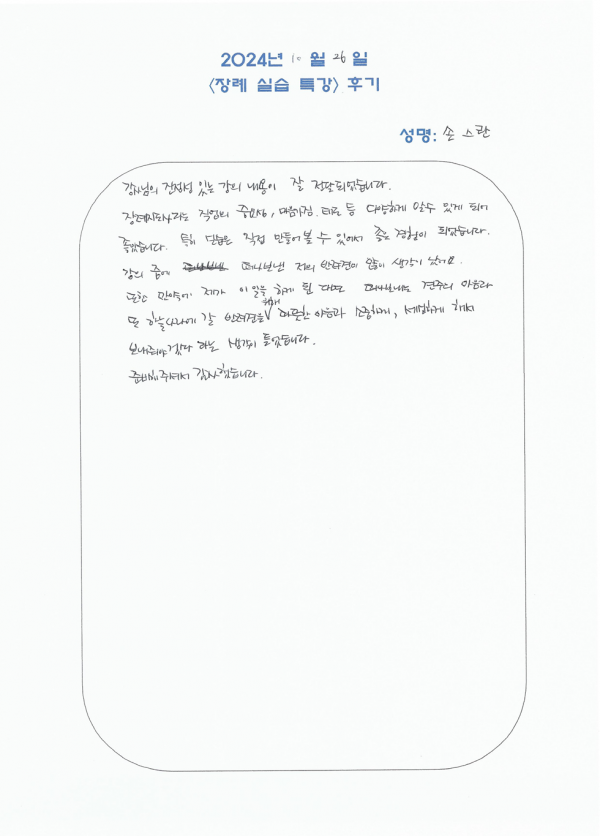 2024년 10 월 26 일
<장례 실습 특강> 후기
성명: 손 스란
강사님의 진정성 있는 강의 내용이 잘 전달되었습니다.
장례지도사라는 직업의 중요성, 마음가짐, 태도 등 다양하게 알수 있게 되어
좋았습니다. 특히 실습은 직접 만들어볼 수 있어서 좋은 경험이 되었습니다.
강의 중에 떠나보낸 저의 반려견이 많이 생각이 났어요.
또한 만약에 제가 이 일을 하게 된 다면 떠나보내는 견주의 마음과
또 하늘나라에 갈 반려견을 위해 따뜻한 마음과 소중하게, 세심하게 해서
보내줘야 겠다 하는 생각이 들었습니다.
준비해주셔서 감사했습니다.